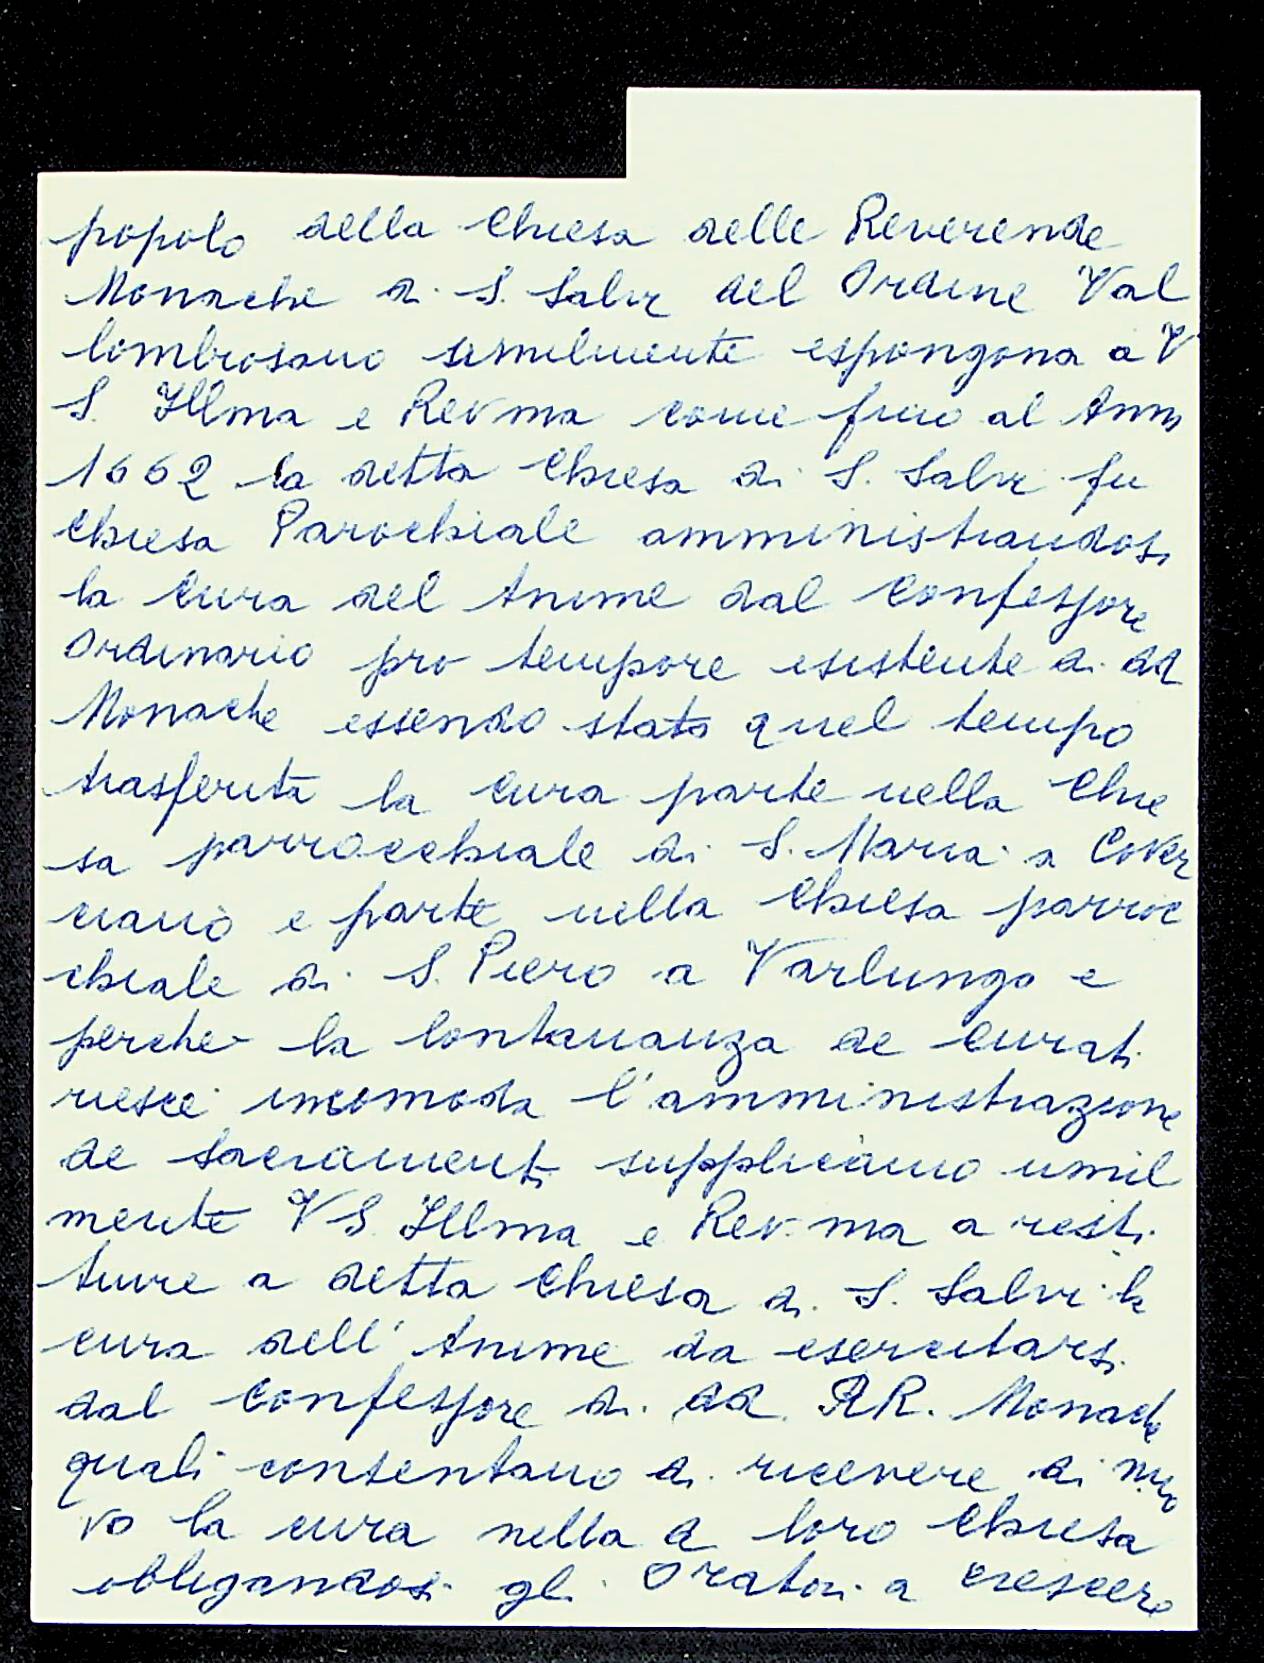 popolo della Chiesa delle Reverende
Monache di S. Salvi del Ordine Val
lombrosano similmente espongono a V
S. Illma e Revma come fino al Anno
1662 la detta Chiesa di S. Salvi fu
Chiesa Parochiale amministrandosi
la Cura del Anime dal Confessore
Ordinario pro tempore esistente di dd
Monache essendo stato quel tempo
trasferita la cura parte nella Chie
sa parrocchiale di S. Maria a Cover
ciano e parte nella Chiesa parroc
chiale di S. Piero a Varlungo e
perche la lontananza de Curati
riesce incomoda l'amministrazione
de Sacramenti supplicano umil
mente VS Illma e Rev.ma a resti
tuire a detta Chiesa di S. Salvi la
cura dell' Anime da esercitarsi
dal Confessore di dd. RR. Monache
quali consentano di ricevere di nuo
vo la cura nella d loro Chiesa
obligandosi gli Oratori a crescere